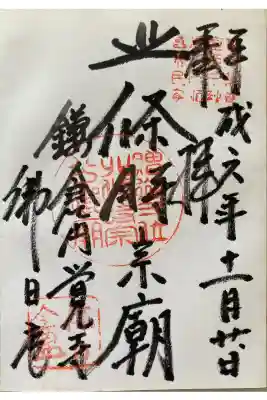 平成六年十一月廿日
奉拝
北條時宗廟
鎌倉円覚寺
佛日庵